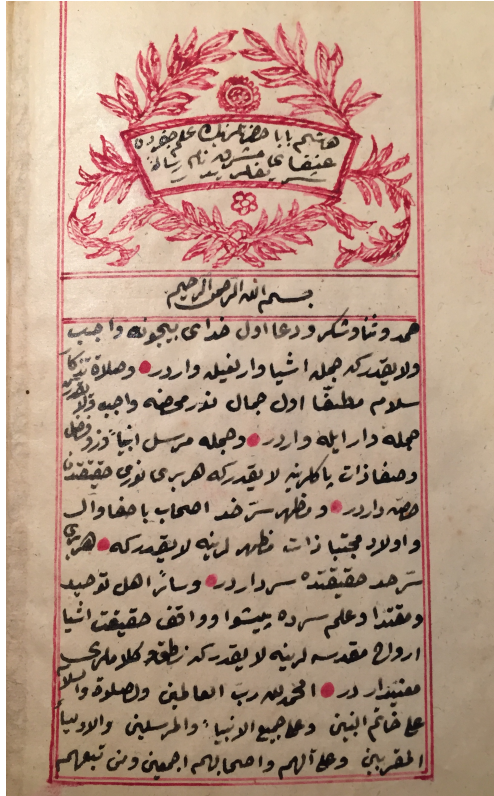 هاشم بابا حضرتلرینك علم جفردن
عنقای مشرق نام رساله
شریفلریدر
بسم الله الرحمن الرحیم
حمد وثنا وشکر ودعا اول خدای بیچونه واجب
ولایقدرکه جمله اشیا وارلغیله واردر وصلاة
سلام مطلقا اول جمال نور محضه واجب ولا
جمله وار ایله واردر وجمله مرسل انبیا
وصفا ذات پاکلرینه لایقدرکه هر بری نوری حقیقتدن
حصه داردر ومظهر سر خدا اصحاب با صفا وآل
واولاد مجتبا ذات مظهرلرینه لایقدرکه هر بری
سر حد حقیقتده سرداردر وسائر اهل توحید
ومقتدا وعلم سرده پیشوا وواقف حقیقت اشیا
ارواح مقدسه لرینه لایقدرکه نطق وکلاملری
مقتدار در الحمد لله رب العالمین والصلوة والسلام
علی خاتم النبین وعلی جمیع الانبیاء والمرسلین والاولیاء
المقربین وعلی آلهم واصحابهم اجمعین ومن تبعهم